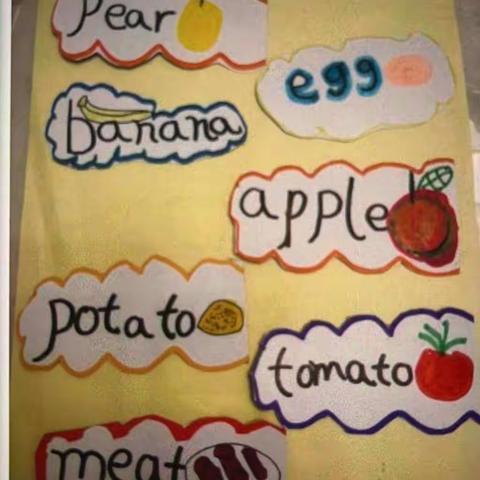 Pear
egg
banana
apple
potato
tomato
meat